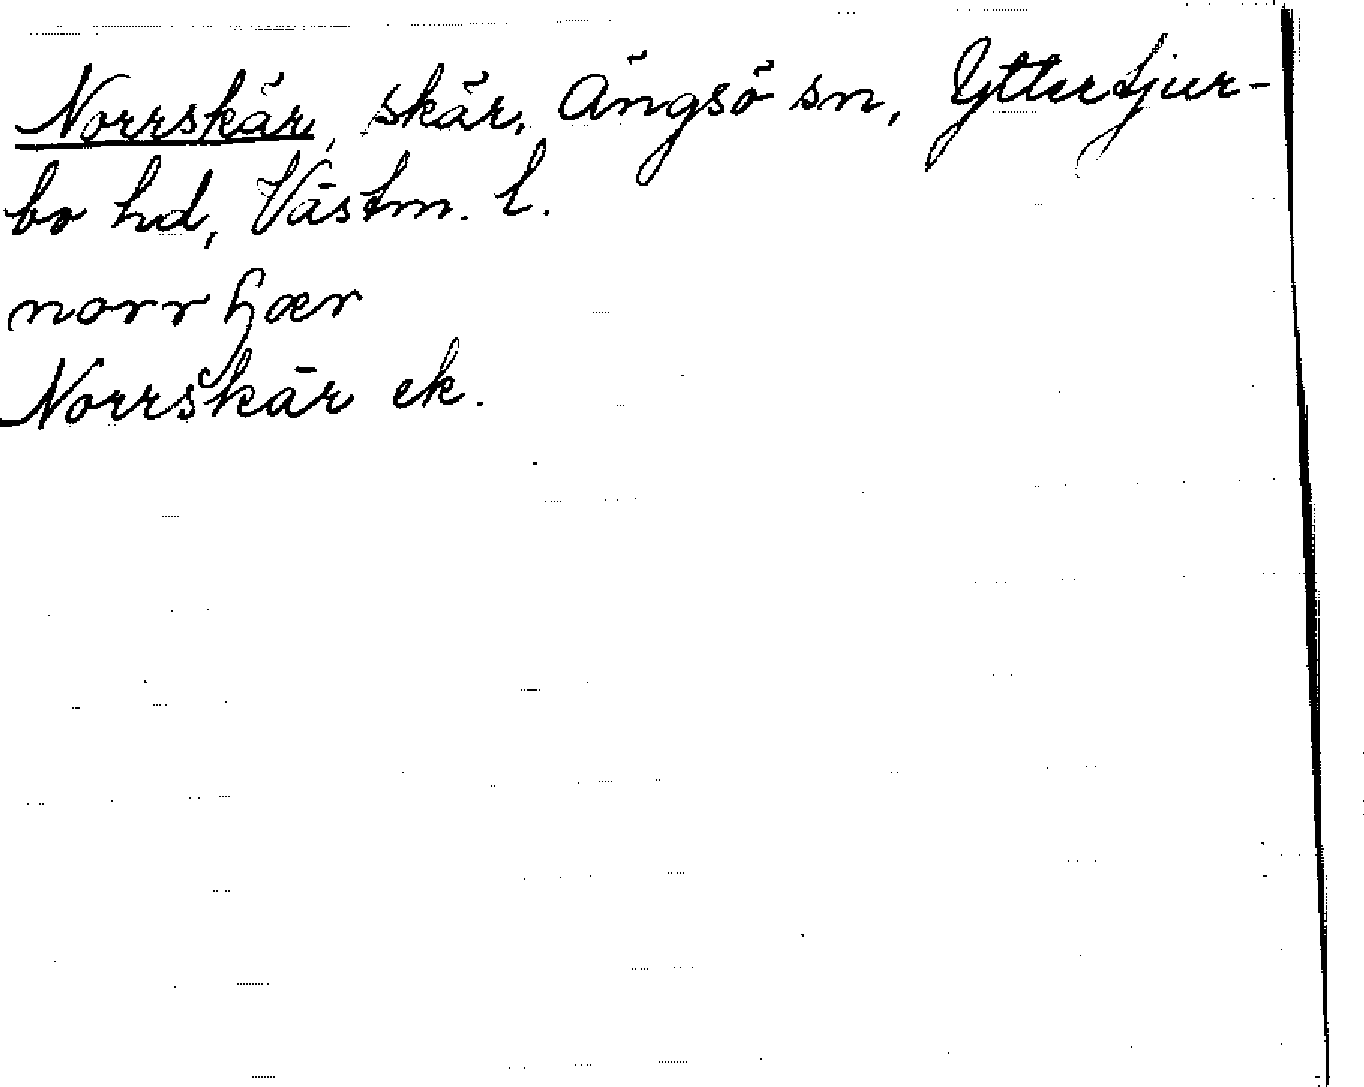 Norrskär, skär, Ängsö sn, Yttertjur-
bo hd, Västm. l.
norrɧær
Norrskär ek.